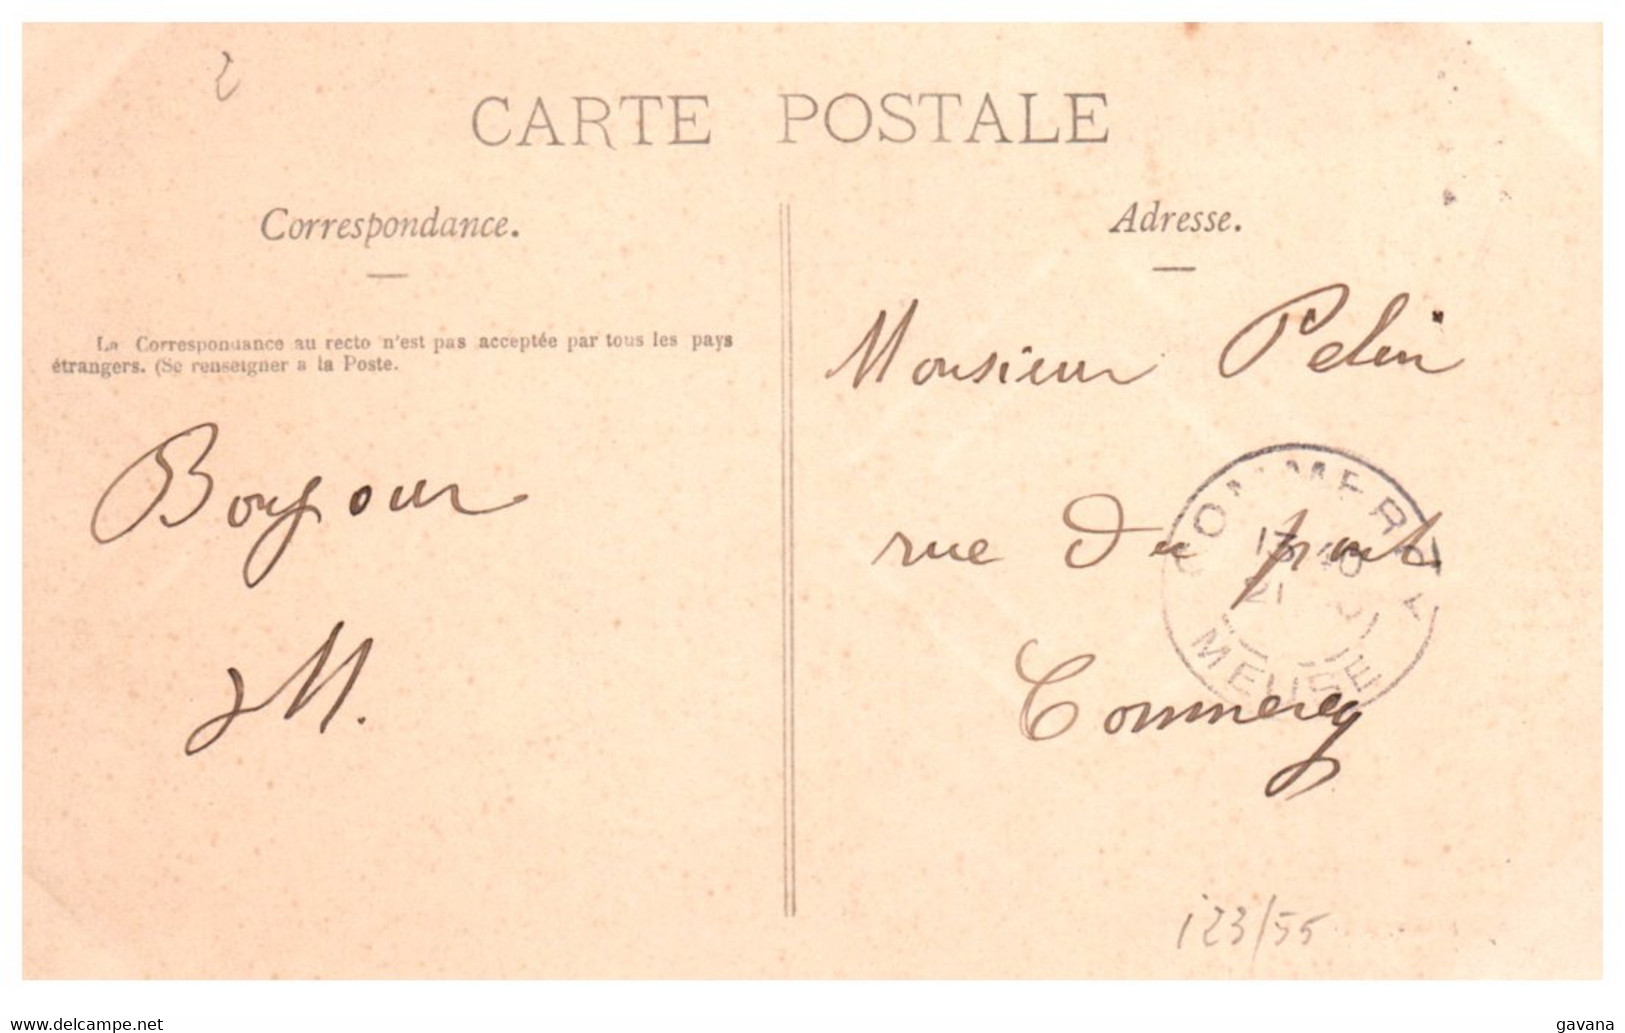 2
CARTE POSTALE
Correspondance.
La Correspondance au recto n'est pas acceptée par tous les pays
étrangers. (Se renseigner a la Poste.
Bonjour
M.
Adresse.
Monsieur Pelin
rue du pont
Commercy
COMMERCY
13 40
21
MEUSE
123/55
www.delcampe.net
gavana